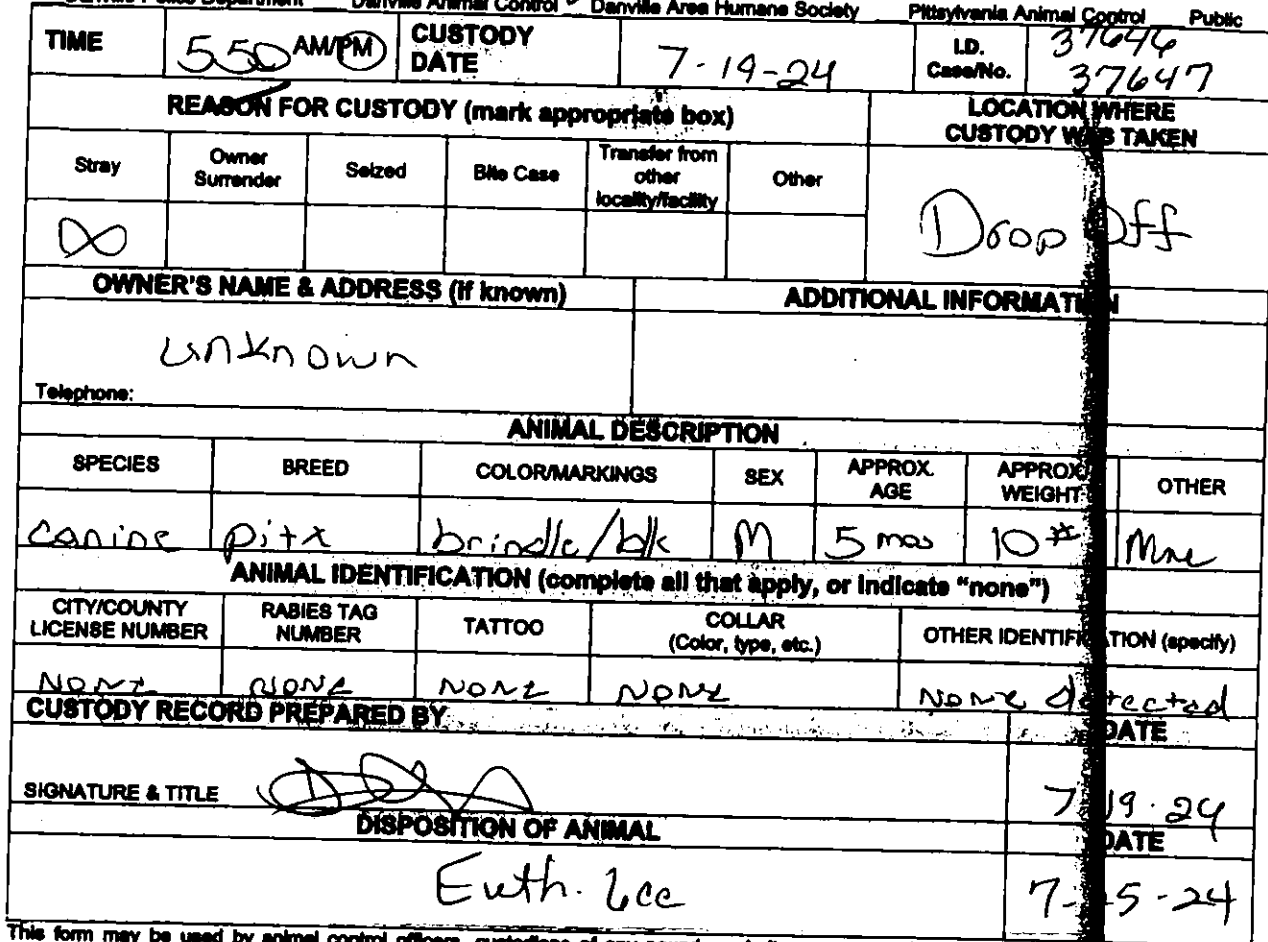 Danville Police Department Danville Animal Control Danville Area Humane Society Pittsylvania Animal Control Public
TIME 550 AM/PM CUSTODY DATE 7-19-24 I.D. Case/No. 37646 37647
REASON FOR CUSTODY (mark appropriate box) LOCATION WHERE CUSTODY WAS TAKEN
Stray Owner Surrender Seized Bite Case Transfer from other locality/facility Other
Drop Off
OWNER'S NAME & ADDRESS (if known) ADDITIONAL INFORMATION
unknown
Telephone:
ANIMAL DESCRIPTION
SPECIES BREED COLOR/MARKINGS SEX APPROX. AGE APPROX. WEIGHT OTHER
canine pitx brindle/blk M 5 mos 10#
ANIMAL IDENTIFICATION (complete all that apply, or indicate "none")
CITY/COUNTY LICENSE NUMBER RABIES TAG NUMBER TATTOO COLLAR (Color, type, etc.) OTHER IDENTIFICATION (specify)
None None None None None detected
CUSTODY RECORD PREPARED BY DATE
SIGNATURE & TITLE 7 19-24
DISPOSITION OF ANIMAL DATE
Euth. 6cc 7- 5-24
This form may be used by animal control officers, custodians of any